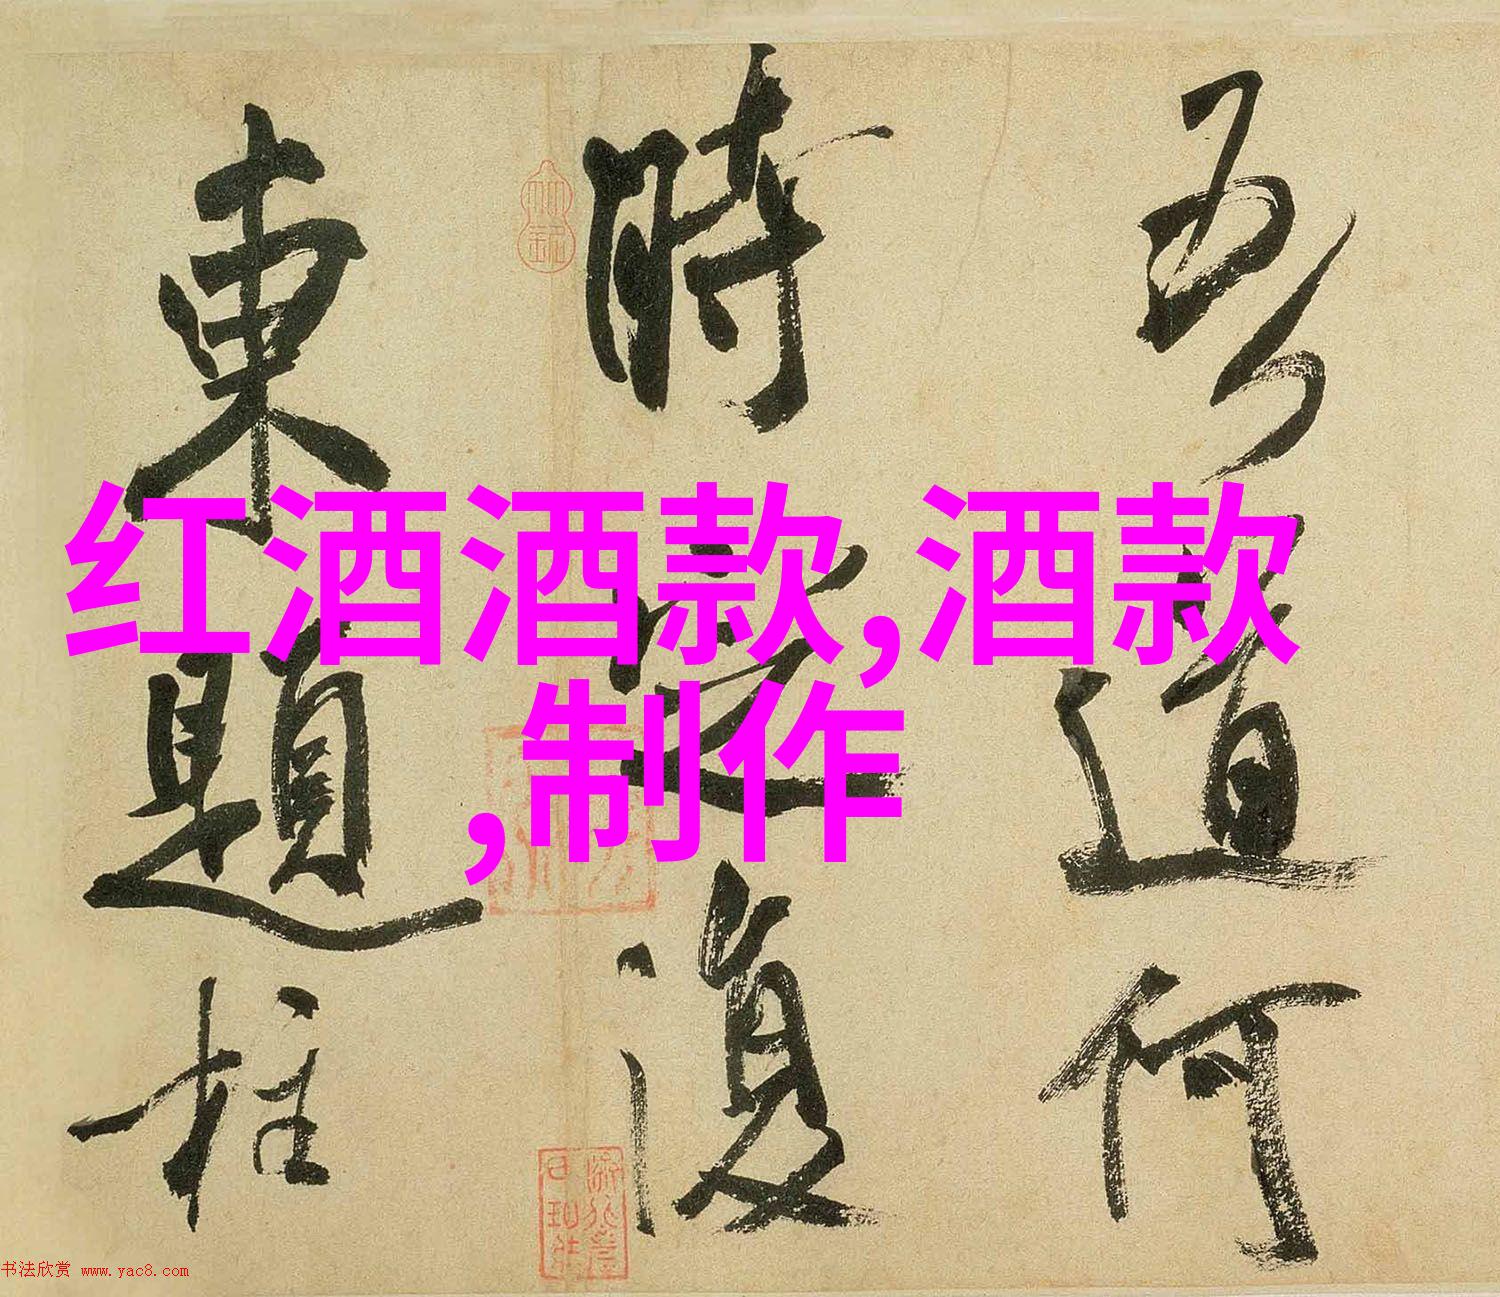 吾道何
時定復
東題柱
红酒酒款,酒款
,制作
书法欣赏 www.yac8.com